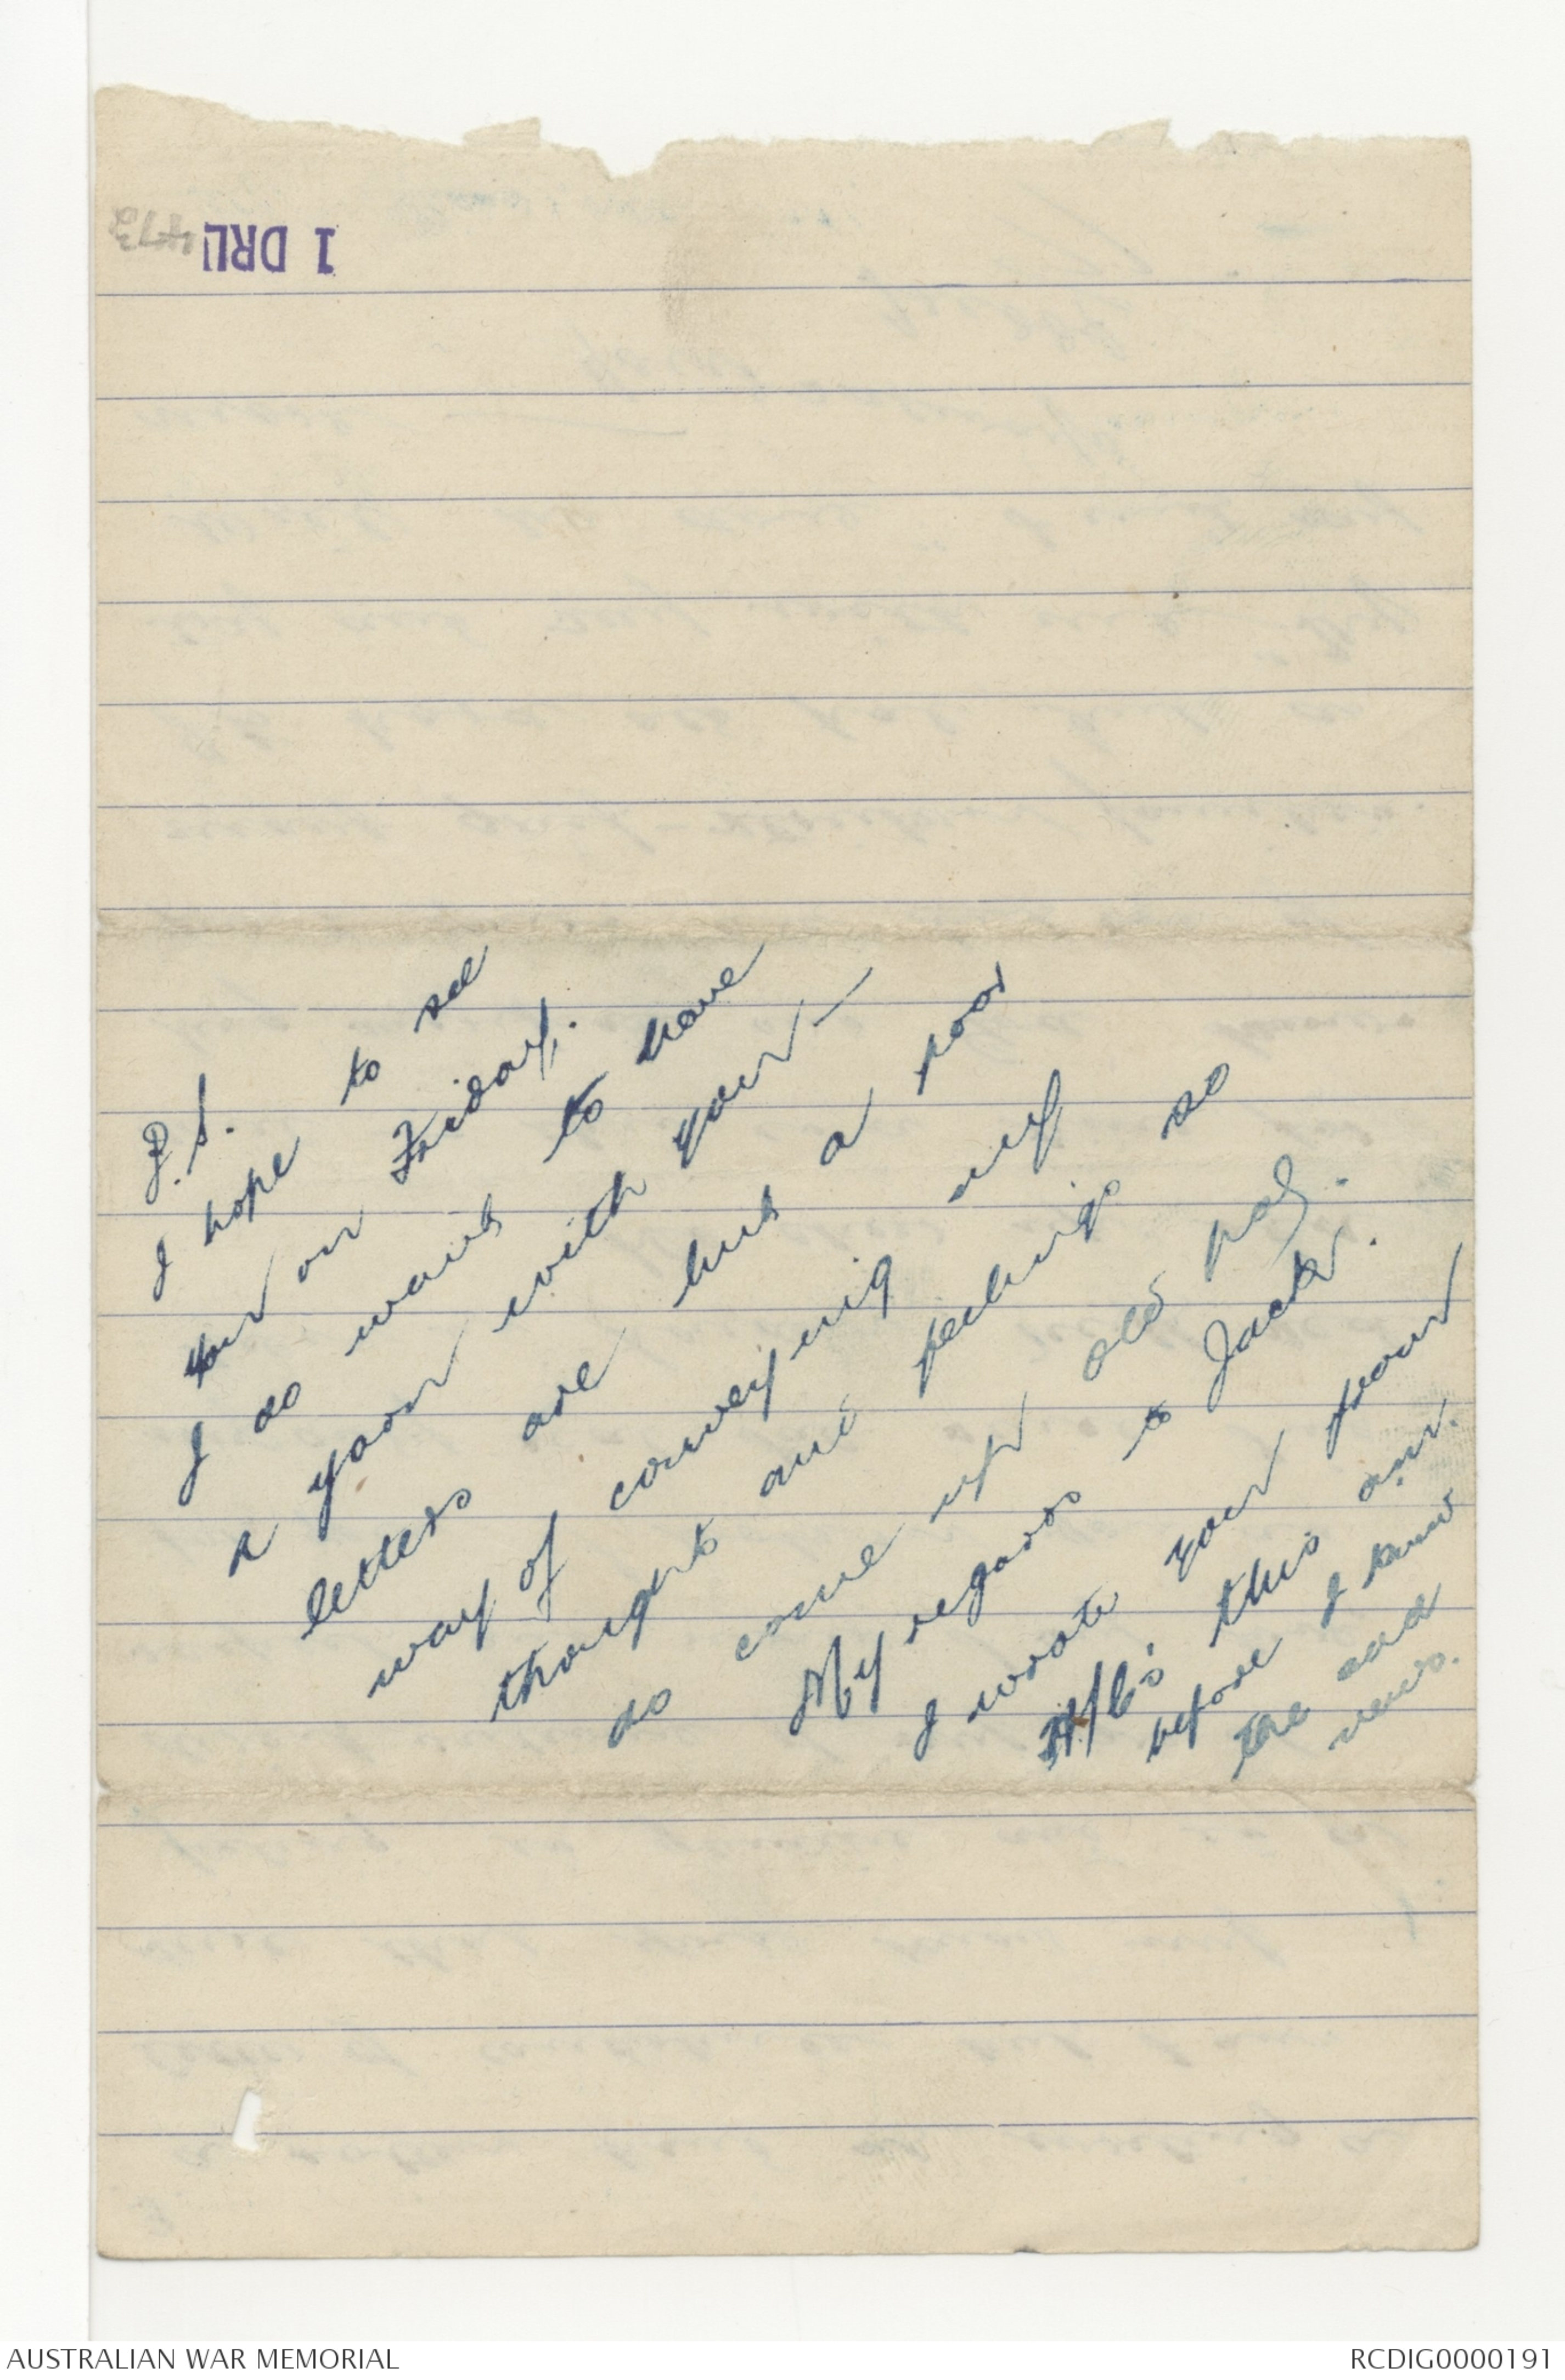 1 DRL
473
P.S.
I hope to see
you on Friday.
I do want to have
a yarn with you —
letters are but a poor
way of conveying my
thoughts and feelings so
do come up old pal.
My regards to Jack.
I wrote you from
H/Q's this a.m.
before I knew
the sad
news.
AUSTRALIAN WAR MEMORIAL
RCDIG0000191